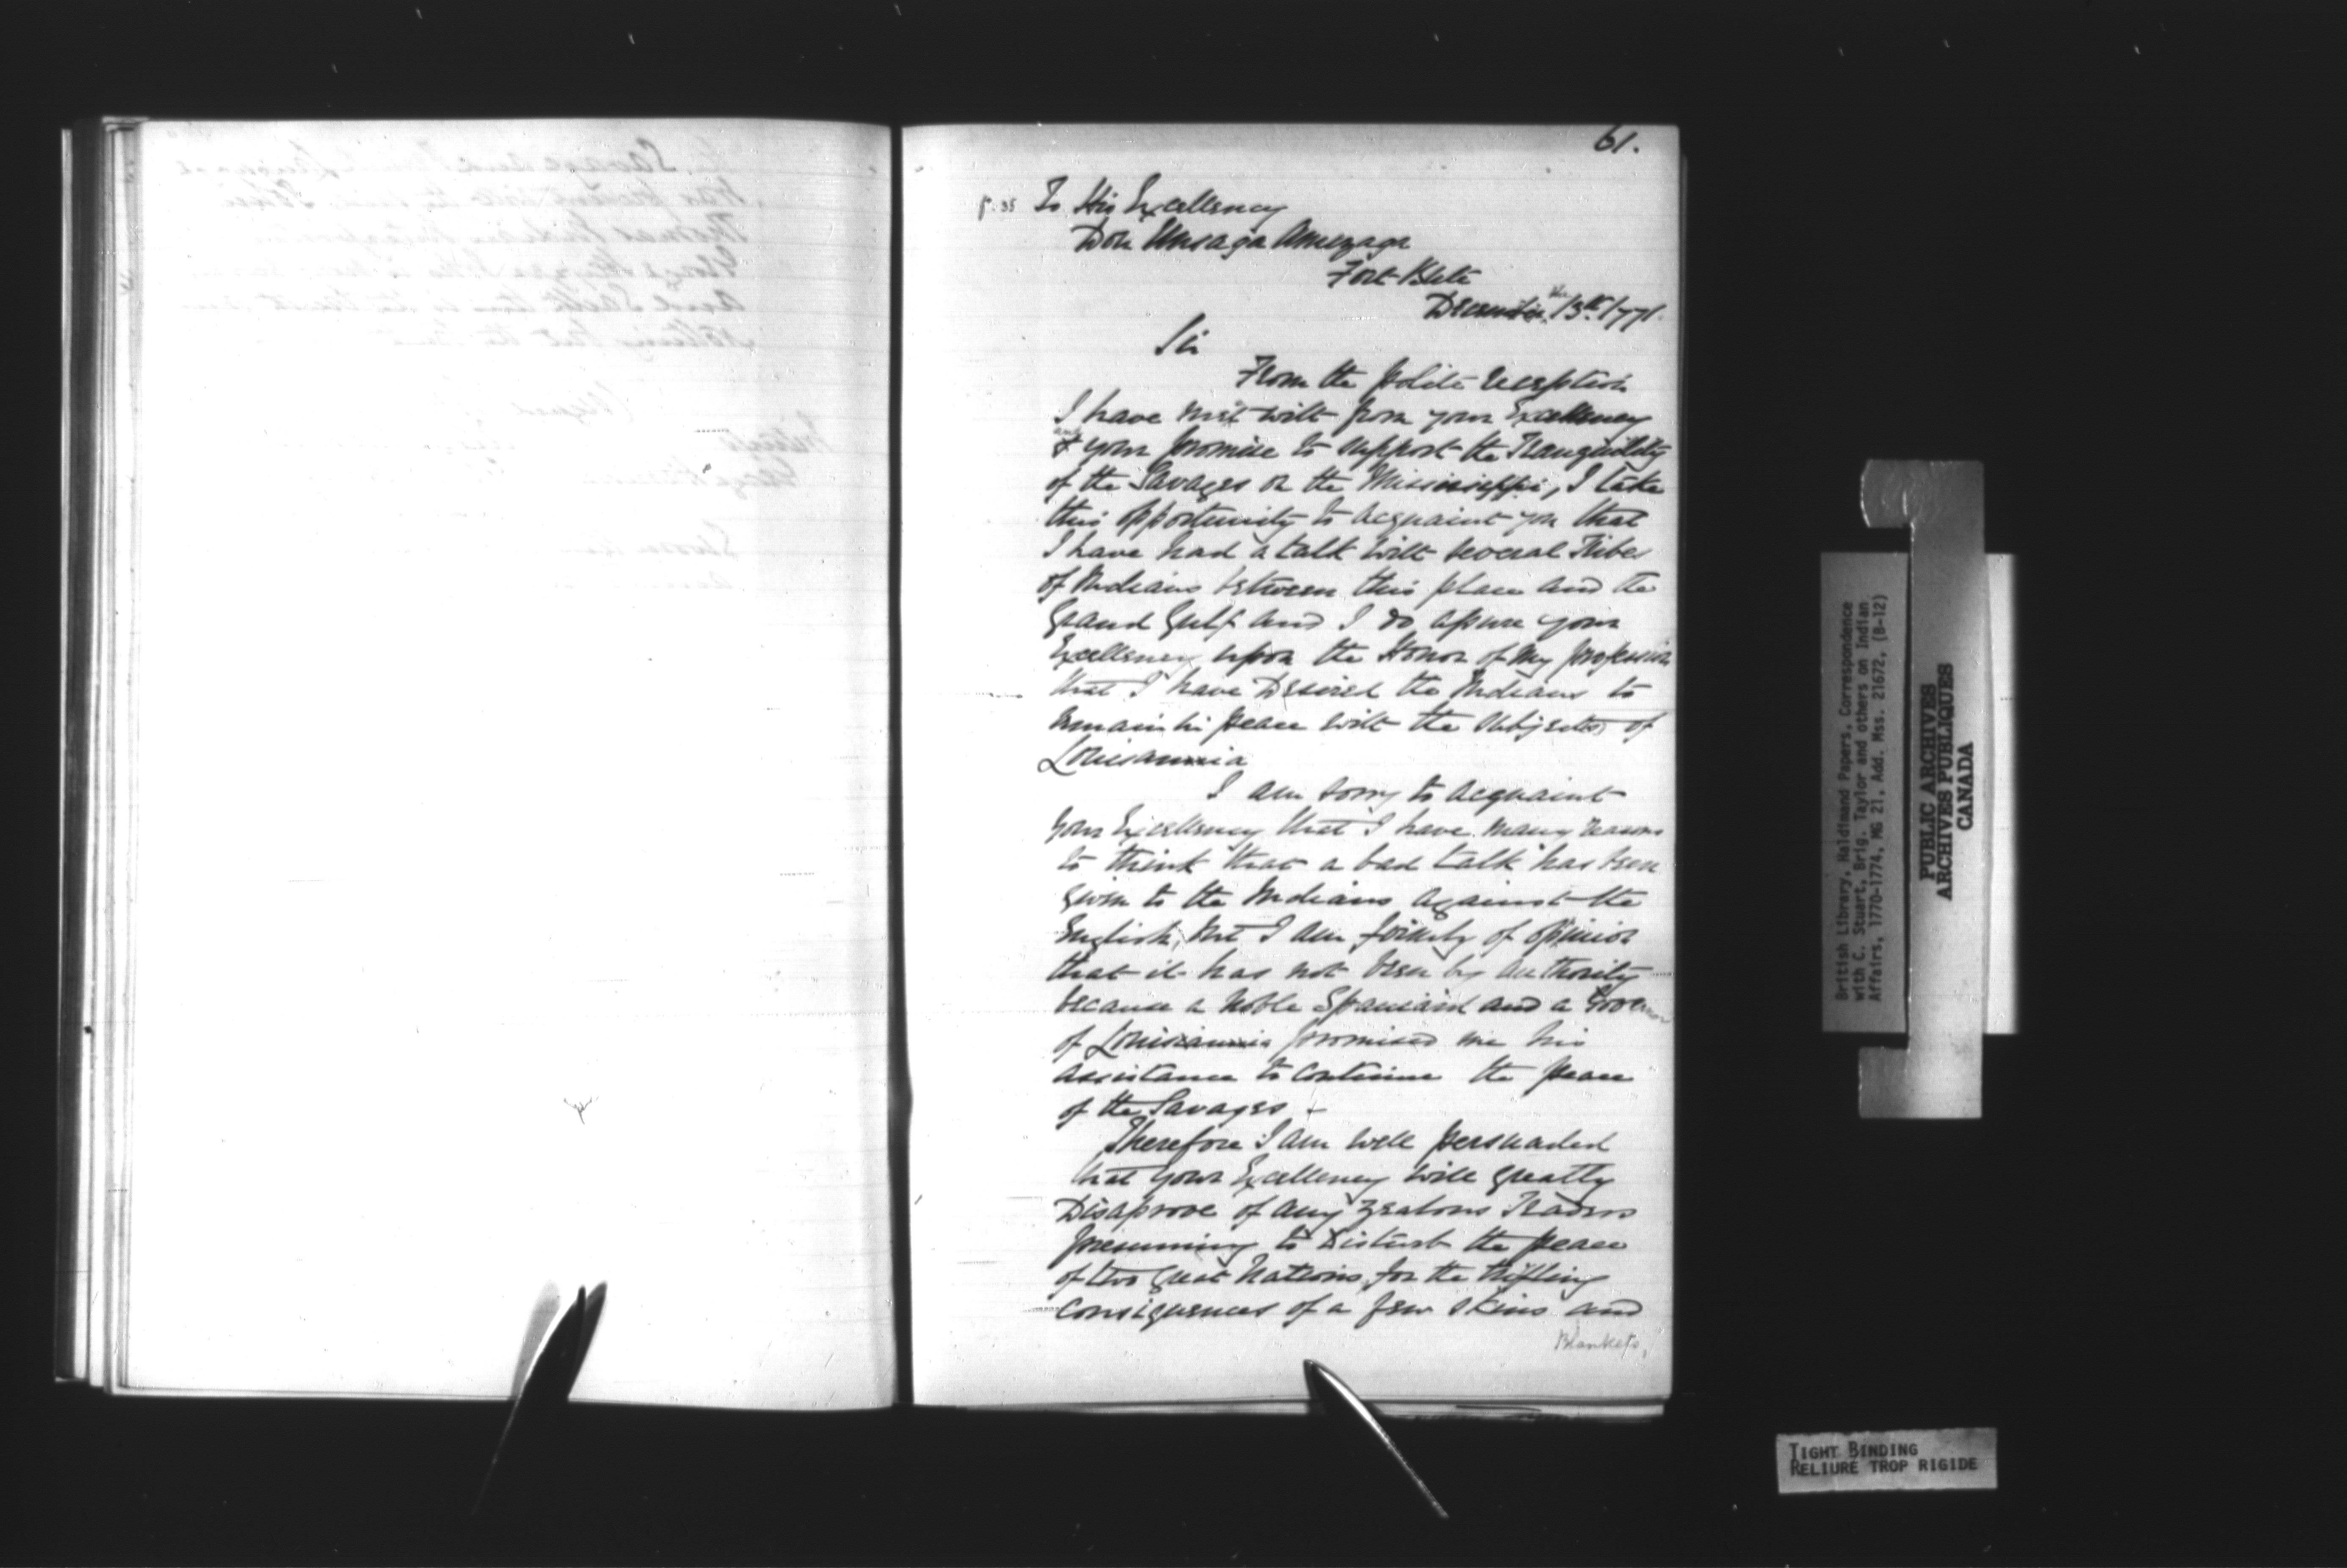 61.
p. 35 To His Excellency
Don Unsaga Amezaga
Fort Bute
December the 13th 1771.
Sir
From the polite reception
I have met with from your Excellency
and your promise to support the Tranquility
of the Savages on the Mississippi, I take
this opportunity to acquaint you that
I have had a talk with several Tribes
of Indians between this place and the
Grand Gulf and I do assure your
Excellency upon the Honor of my profession
that I have Desired the Indians to
remain in peace with the Subjects of
Louisannia
I am sorry to acquaint
your Excellency that I have many reasons
to think that a bad talk has been
given to the Indians against the
English, but I am firmly of opinion
that it has not been by authority
because a Noble Spaniard and a Governor
of Louisiannia promised me his
assistance to continue the peace
of the Savages -
Therefore I am well persuaded
that your Excellency will greatly
Disaprove of any zealous Traders
presuming to Disturb the peace
of two great Nations, for the trifling
consequences of a few skins and
Blankets,
British Library, Haldimand Papers, Correspondence
with C. Stuart, Brig. Taylor and others on Indian
Affairs, 1770-1774, MG 21, Add. Mss. 21672, (B-12)
PUBLIC ARCHIVES
ARCHIVES PUBLIQUES
CANADA
TIGHT BINDING
RELIURE TROP RIGIDE